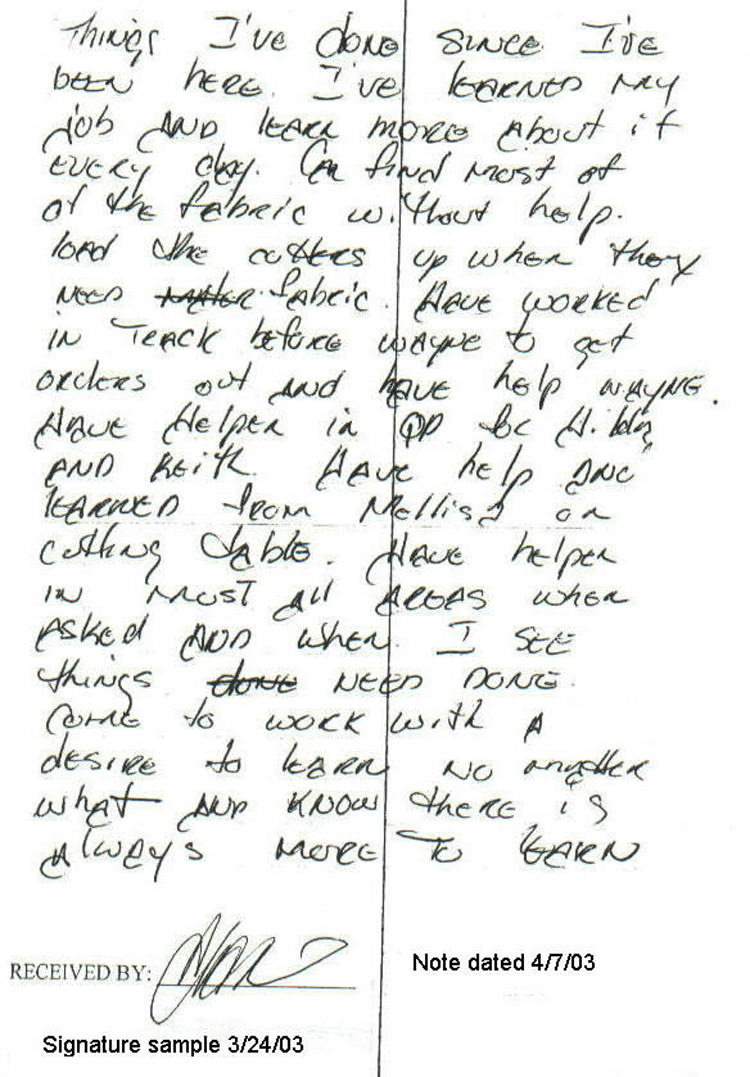 Things I've done since I've
been here. I've learned my
job and learn more about it
every day. Can find most of
of the fabric without help.
load the cutters up when they
need fabric. Have worked
in Track before wayne to get
orders out and have help wayne.
Have Helper in QP for Hilda
and Keith. Have help and
learned from Mellisa on
cutting table. Have helper
in most all areas when
asked and when I see
things done need done.
Come to work with a
desire to learn no matter
what and know there is
always more to learn
RECEIVED BY:
Note dated 4/7/03
Signature sample 3/24/03